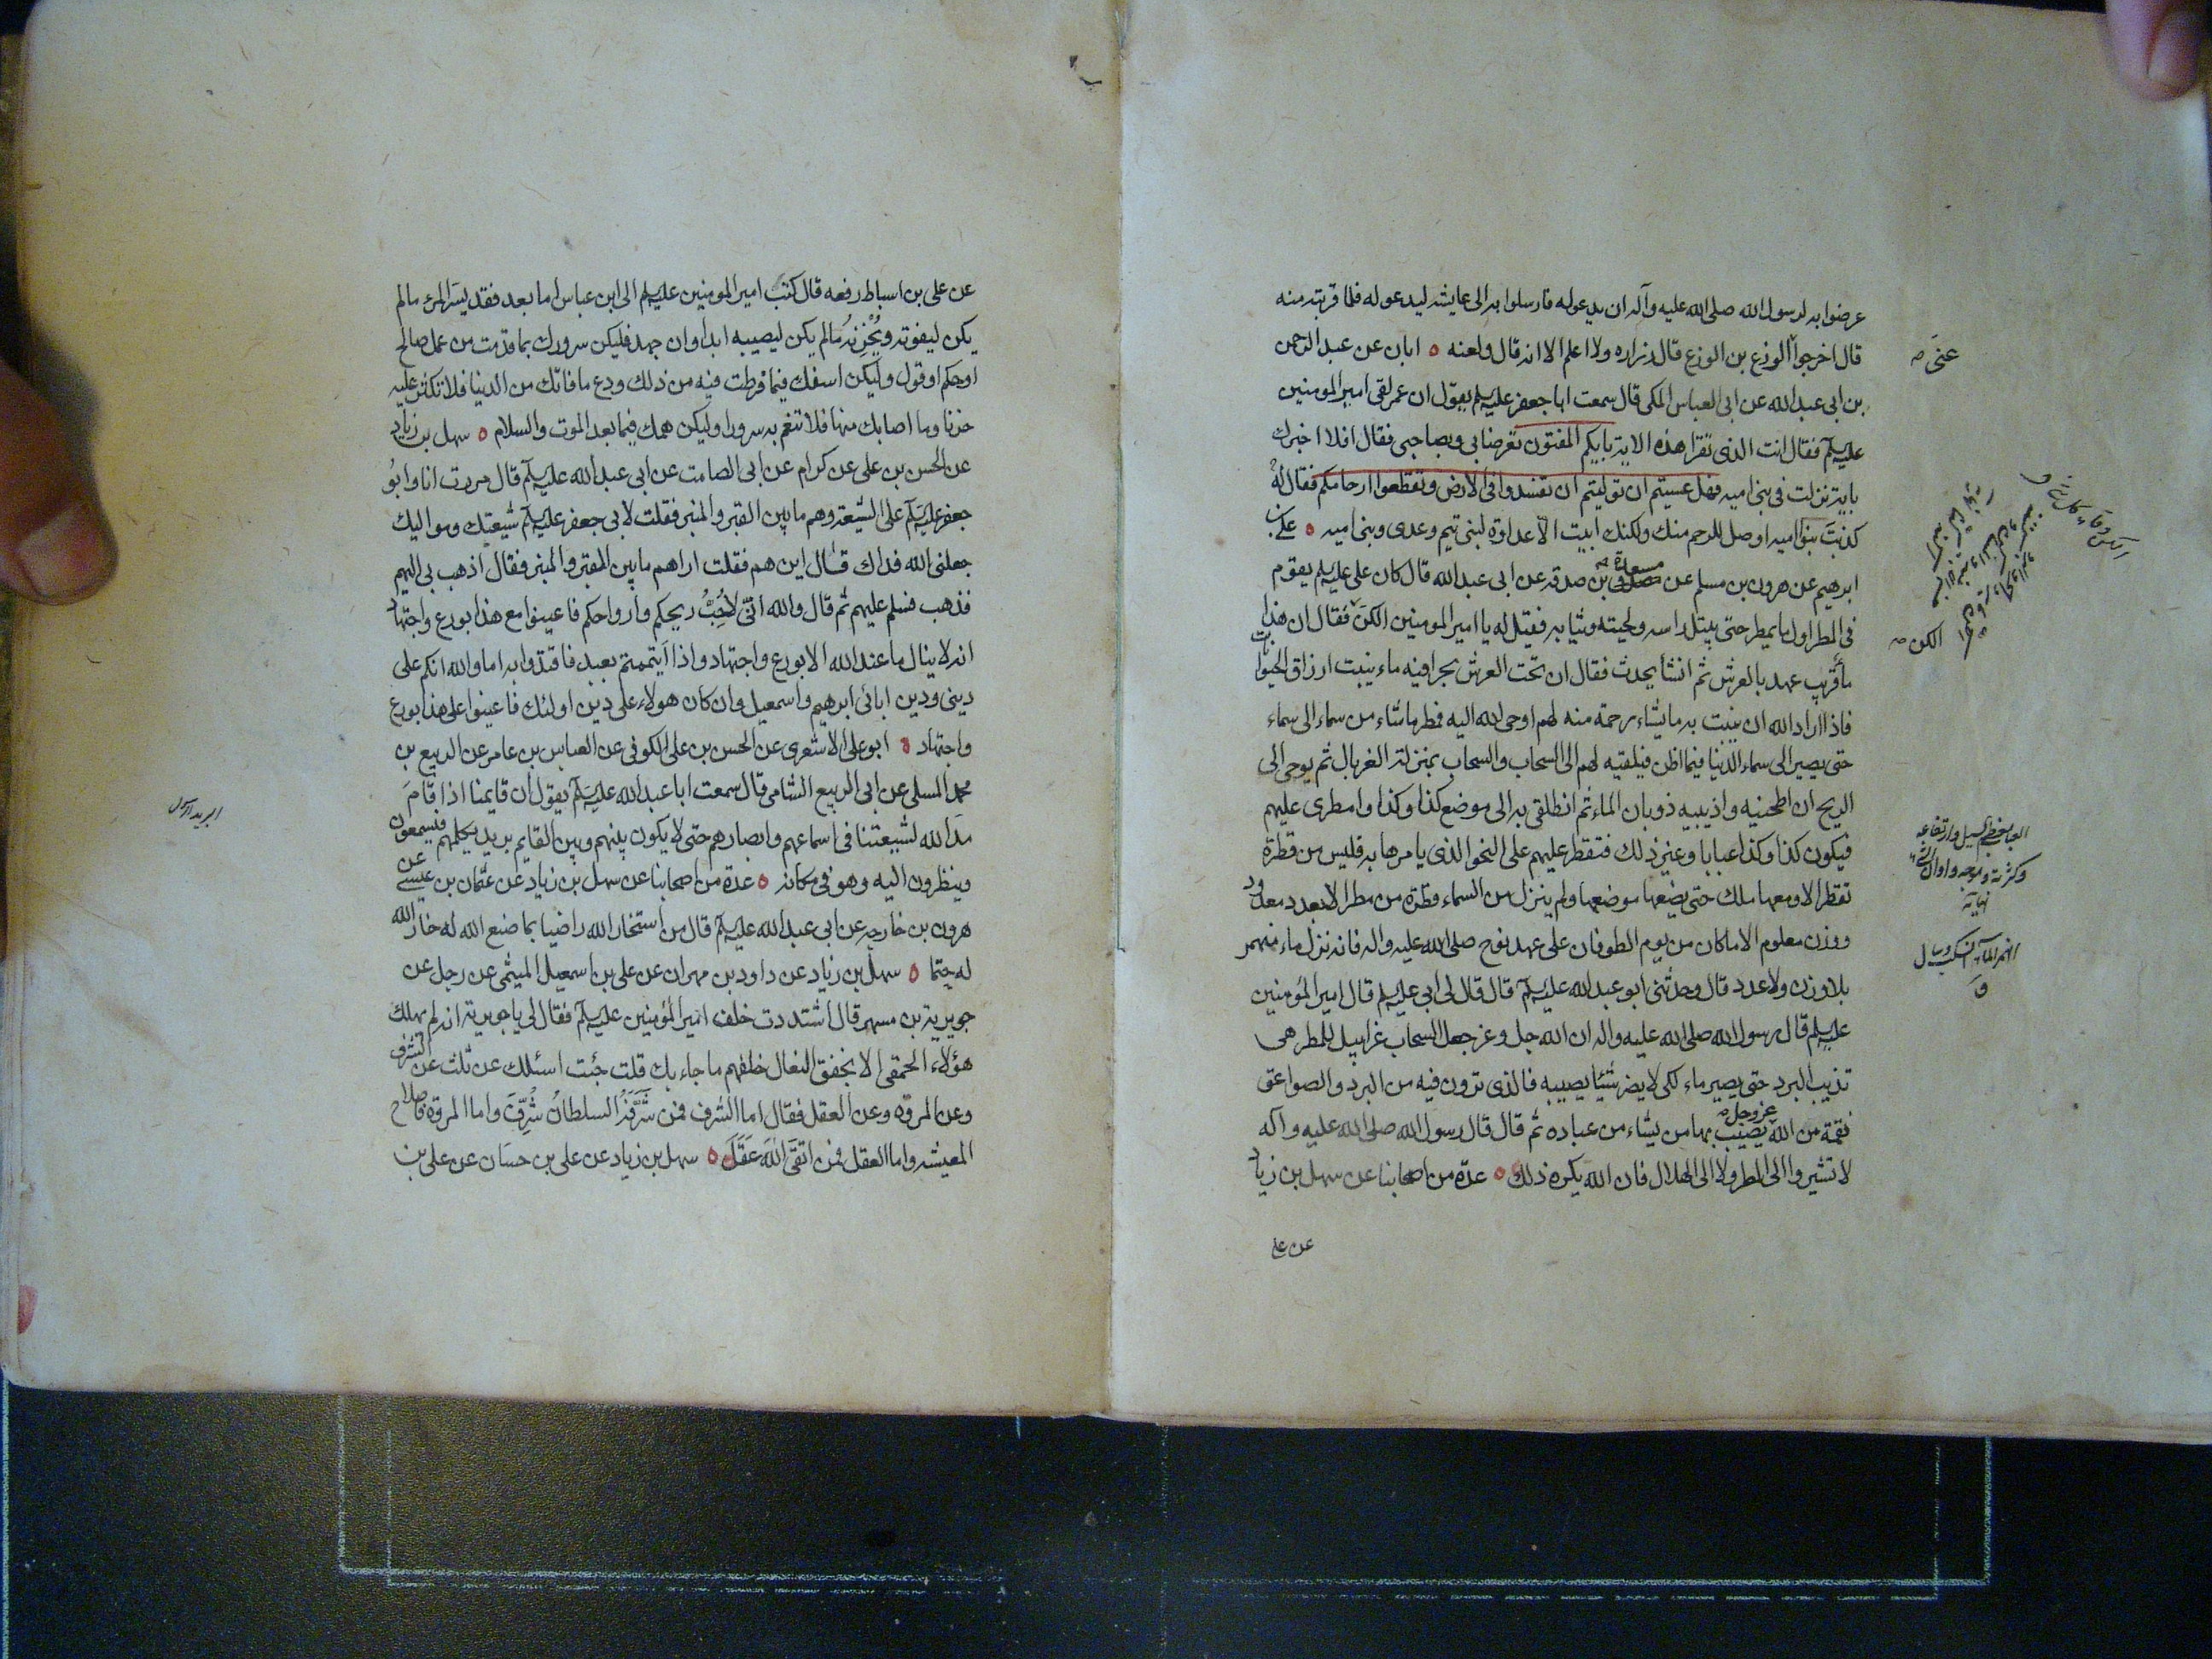 عرضوا به لرسول الله صلى الله عليه وآله ان يدعو له فارسلوا به الى عايشه ليدعو له فلما قربته منه
قال اخرجوا الوزغ بن الوزغ قال زراره ولا اعلم الا انه قال ولعنه ه ابان عن عبد الرحمن
بن ابى عبد الله عن ابى العباس المكى قال سمعت ابا جعفر عليه السلم يقول ان عمر لقى امير المومنين
عليه السلم فقال انت الذى تقرا هذه الاية بايكم المفتون تعرضا بى وبصاحبى فقال افلا اخبرك
باية نزلت فى بنى اميه فهل عسيتم ان توليتم ان تفسدوا فى الارض وتقطعوا ارحامكم فقال له
كذبت بنو اميه اوصل للرحم منك ولكنك ابيت الا عداوة لبنى تيم وعدى وبنى اميه ه على بن
ابرهيم عن هرون بن مسلم عن مسعدة بن صدقه عن ابى عبد الله قال كان على عليه السلم يقوم
فى المطر اول ما يمطر حتى يبتل راسه ولحيته وثيابه فقيل له يا امير المومنين الكن فقال ان هذا
ماء قريب عهد بالعرش ثم انشأ يحدث فقال ان تحت العرش بحرا فيه ماء ينبت ارزاق الحيوانات
فاذا اراد الله ان ينبت به ما يشاء رحمة منه لهم اوحى الله اليه فطر ماشاء من سماء الى سماء
حتى يصير الى سماء الدنيا فيما اظن فيلقيه لهم الى السحاب والسحاب بمنزلة الغربال ثم يوحى الى
الريح ان اطحنيه واذيبيه ذوبان الماء ثم انطلقى به الى موضع كذا وكذا وامطرى عليهم
فيكون كذا وكذا عبابا وغير ذلك فتقطر عليهم على النحو الذى يامرها به فليس من قطرة
تقطر الا ومعها ملك حتى يضعها موضعها ولم ينزل من السماء قطرة من مطر الا بعدد معدود
ووزن معلوم الا ماكان من يوم الطوفان على عهد نوح صلى الله عليه واله فانه نزل ماء منهمر
بلا وزن ولا عدد قال وحدثنى ابو عبد الله عليه السلم قال قال لى ابى عليه السلم قال امير المؤمنين
عليه السلم قال رسول الله صلى الله عليه واله ان الله جل وعز جعل السحاب غرابيل للمطر هى
تذيب البرد حتى يصير ماء لكى لا يضر شيئا يصيبه فالذى ترون فيه من البرد والصواعق
نقمة من الله عز وجل يصيب بها من يشاء من عباده ثم قال قال رسول الله صلى الله عليه وآله
لا تشيروا الى المطر ولا الى الهلال فان الله يكره ذلك ه عدة من اصحابنا عن سهل بن زياد
عن على
عنى
الكن
العباب معظم السيل وارتفاعه
وكثرته وموجه واوائل
نهاية
انهمر الماء انسكب وسال
ق
عن على بن اسباط رفعه قال كتب امير المومنين عليه السلم الى ابن عباس اما بعد فقد يسر المرء مالم
يكن ليفوته ويحزنه مالم يكن ليصيبه ابدا وان جهد فليكن سرورك بما قدمت من عمل صالح
او حكم او قول وليكن اسفك فيما فرطت فيه من ذلك ودع ما فاتك من الدنيا فلا تكثر عليه
حزنا وما اصابك منها فلا تنعم به سرورا وليكن همك فيما بعد الموت والسلام ه سهل بن زياد
عن الحسن بن على عن كرام عن ابى الصامت عن ابى عبد الله عليه السلم قال مررت انا وابو
جعفر عليه السلم على الشيعة وهم مابين القبر والمنبر فقلت لابى جعفر عليه السلم شيعتك ومواليك
جعلنى الله فداك قال اين هم فقلت اراهم مابين القبر والمنبر فقال اذهب بى اليهم
فذهب فسلم عليهم ثم قال والله انى لاحب ريحكم وارواحكم فاعينوا مع هذا بورع واجتهاد
انه لا ينال ما عند الله الا بورع واجتهاد واذا ايتممتم بعبد فاقتدوا به اما والله انكم على
دينى ودين ابائى ابرهيم واسمعيل وان كان هولاء على دين اولئك فاعينوا على هذا بورع
واجتهاد ه ابو على الاشعرى عن الحسن بن على الكوفى عن العباس بن عامر عن الربيع بن
محمد المسلى عن ابى الربيع الشامى قال سمعت ابا عبد الله عليه السلم يقول ان قايمنا اذا قام
مد الله لشيعتنا فى اسماعهم وابصارهم حتى لا يكون بينهم وبين القايم بريد يكلمهم فيسمعون
وينظرون اليه وهو فى مكانه ه عدة من اصحابنا عن سهل بن زياد عن عثمان بن عيسى عن
هرون بن خارجه عن ابى عبد الله عليه السلم قال من استخار الله راضيا بما صنع الله له خار الله
له حتما ه سهل بن زياد عن داود بن مهران عن على بن اسمعيل الميثمى عن رجل عن
جويرية بن مسهر قال اشتددت خلف امير المؤمنين عليه السلم فقال لى يا جويرية انه لم يهلك
هؤلاء الحمقى الا بخفق النعال خلفهم ما جاء بك قلت جئت اسئلك عن ثلث عن الشرف
وعن المروة وعن العقل فقال اما الشرف فمن شرفه السلطان شرف واما المروة فاصلاح
المعيشه واما العقل فمن اتقى الله عقل ه سهل بن زياد عن على بن حسان عن على بن
البريد الرسول